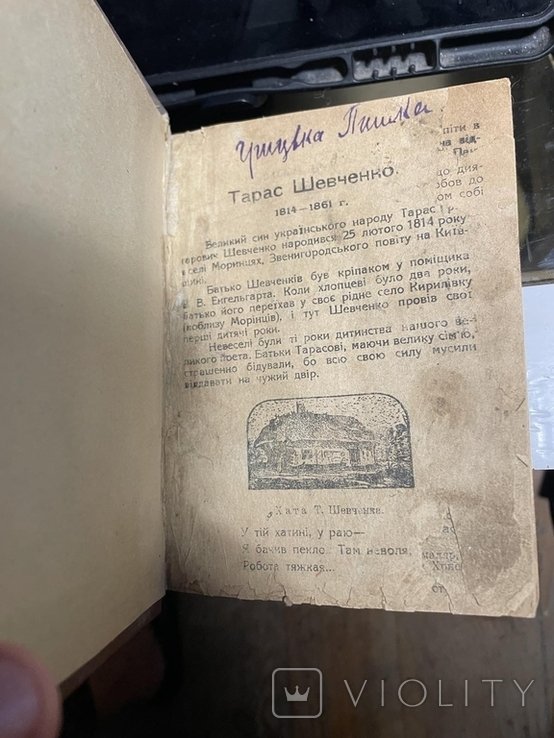 Тарас Шевченко.
1814—1861 г.
Великий син українського народу Тарас Гр-
горович Шевченко народився 25 лютого 1814 року
в селі Моринцях, Звенигородського повіту на Київ-
щині.
Батько Шевченків був кріпаком у поміщика
В. Енгельгарта. Коли хлопцеві було два роки,
батько його переїхав у своє рідне село Кирилівку
(поблизу Морінців), і тут Шевченко провів свої
перші дитячі роки.
Невеселі були ті роки дитинства нашого ве-
ликого поета. Батьки Тарасові, маючи велику сім'ю,
страшенно бідували, бо всю свою силу мусили
віддавати на чужий двір.
Хата Т. Шевченка.
У тій хатині, у раю—
Я бачив пекло. Там неволя,
Робота тяжкая...
піти в
на від-
що дия-
бов до
ом собі
маляр,
ст
VIOLITY